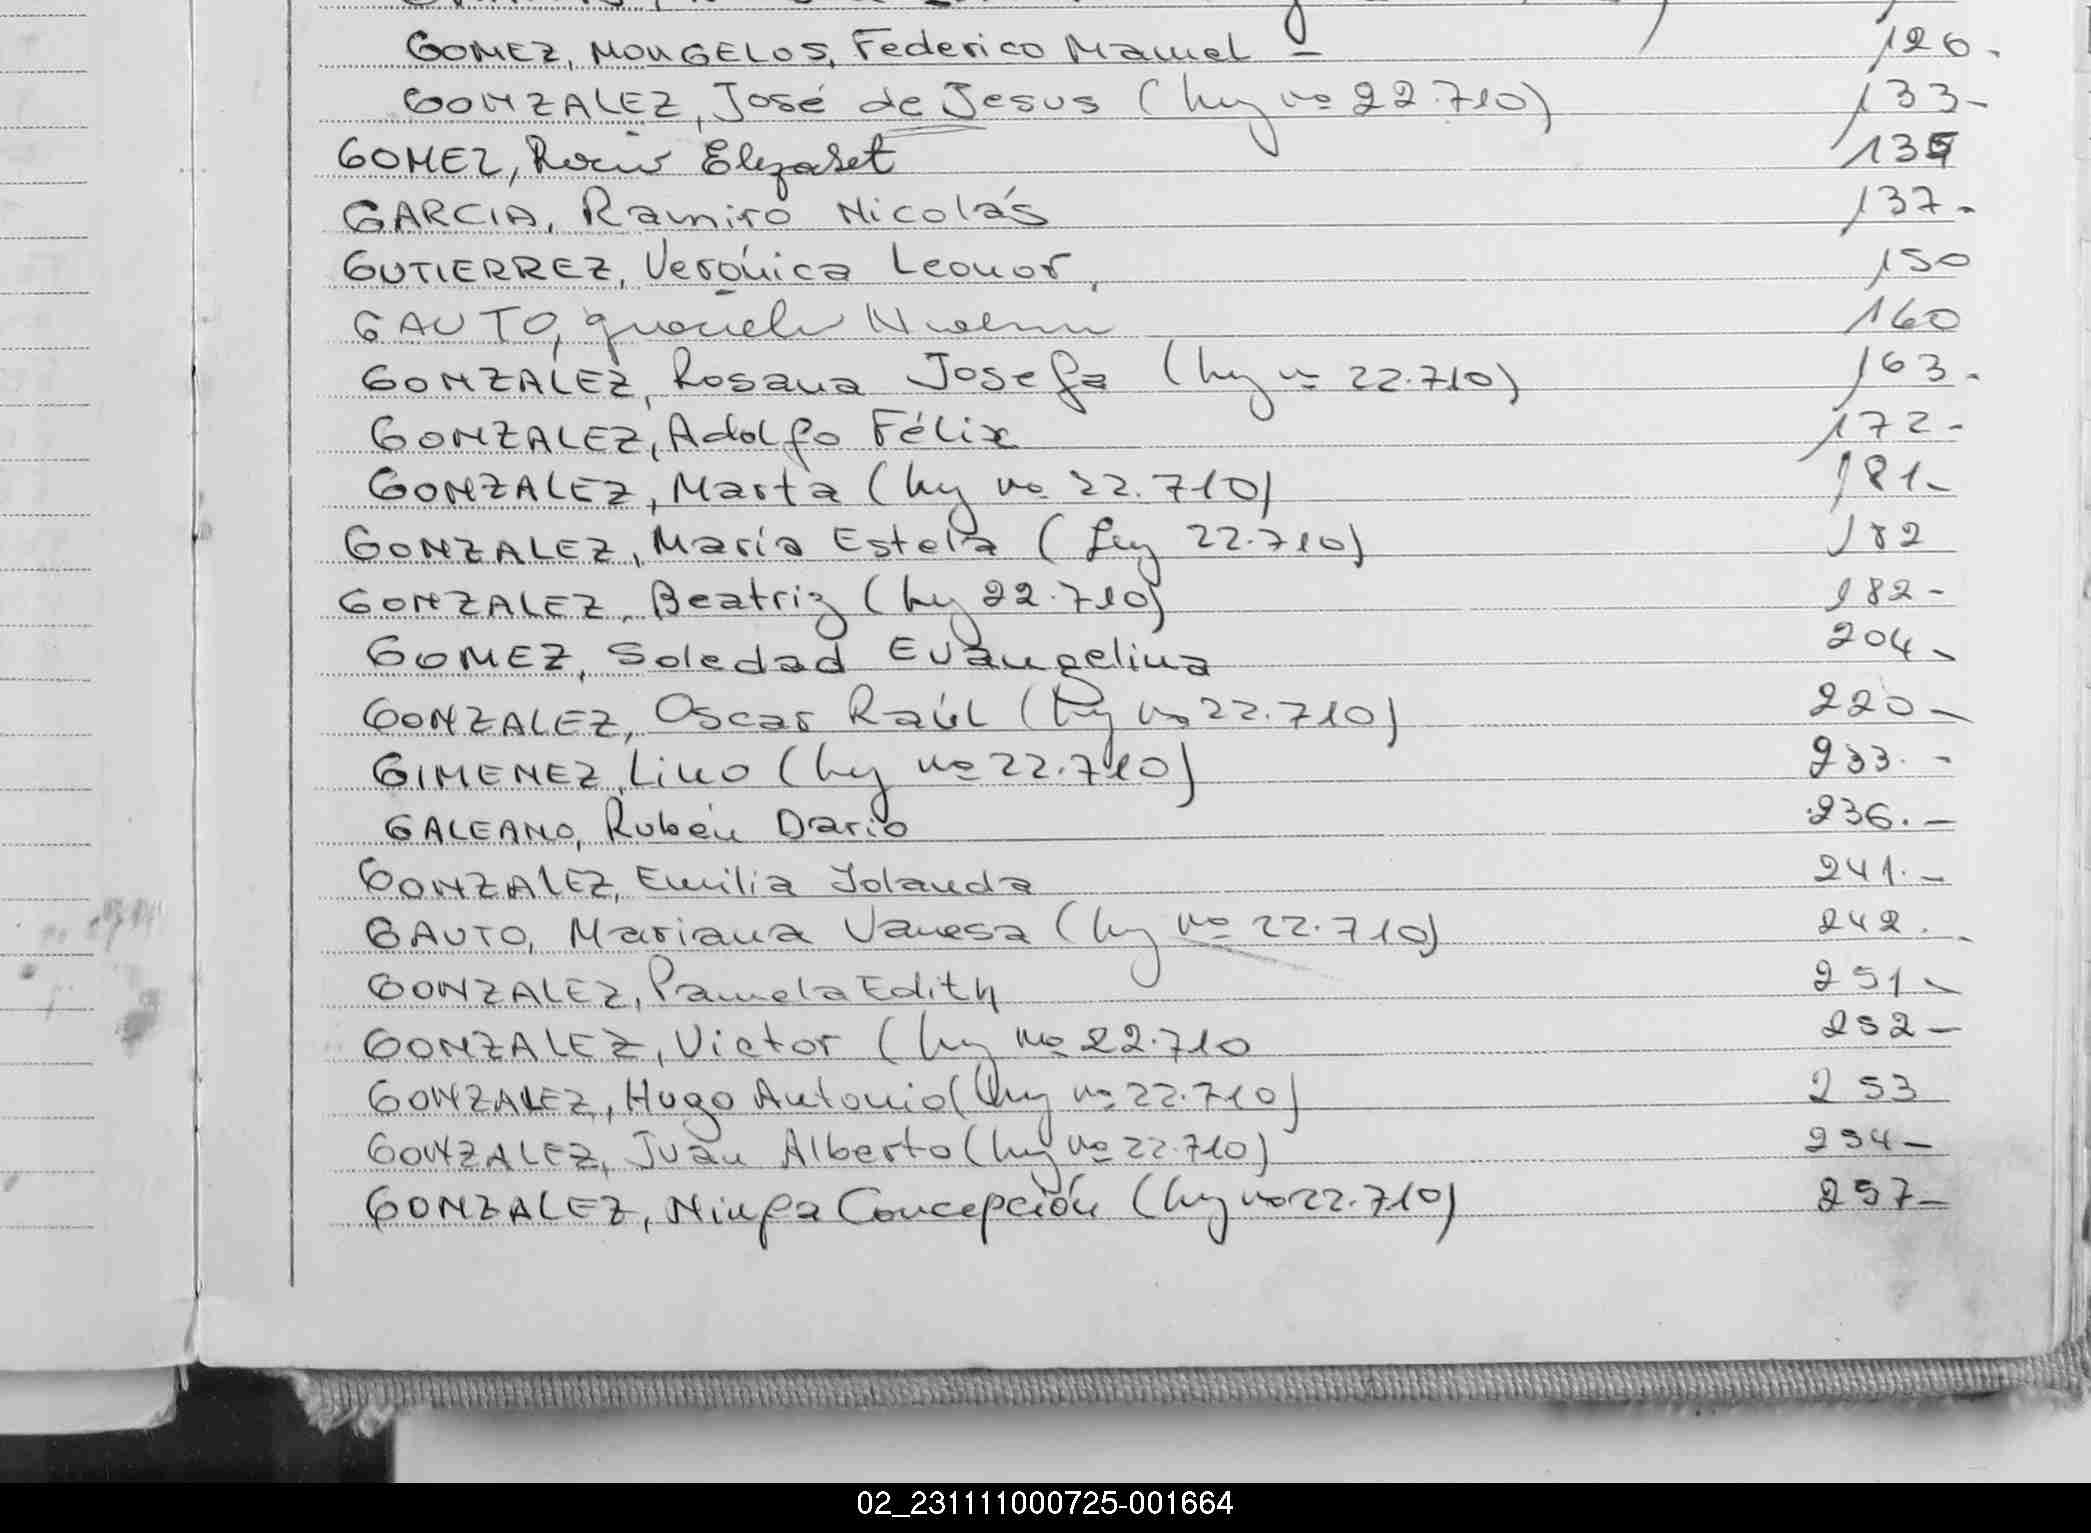 GOMEZ, MONGELOS, Federico Manuel - 126.
GONZALEZ, José de Jesus (Ley no 22.710) 133-
GOMEZ, Rocio Elizabet 135
GARCIA, Ramiro Nicolás 137.
GUTIERREZ, Verónica Leonor, 150
GAUTO, 160
GONZALEZ, Rosana Josefa (Ley no 22.710) 163.
GONZALEZ, Adolfo Félix 172-
GONZALEZ, Marta (Ley no 22.710) 181-
GONZALEZ, María Estela (Ley 22.710) 182
GONZALEZ, Beatriz (Ley 22.710) 182-
GOMEZ, Soledad Evangelina 204-
GONZALEZ, Oscar Raúl (Ley no 22.710) 220-
GIMENEZ, Lino (Ley no 22.710) 233.-
GALEANO, Rubén Dario 236.-
GONZALEZ, Emilia Yolanda 241.-
GAUTO, Mariana Vanesa (Ley no 22.710) 242.-
GONZALEZ, Pamela Edith 251-
GONZALEZ, Victor (Ley no 22.710 252-
GONZALEZ, Hugo Antonio (Ley no 22.710) 253
GONZALEZ, Juan Alberto (Ley no 22.710) 254-
GONZALEZ, Ninfa Concepción (Ley no 22.710) 257-
02_231111000725-001664